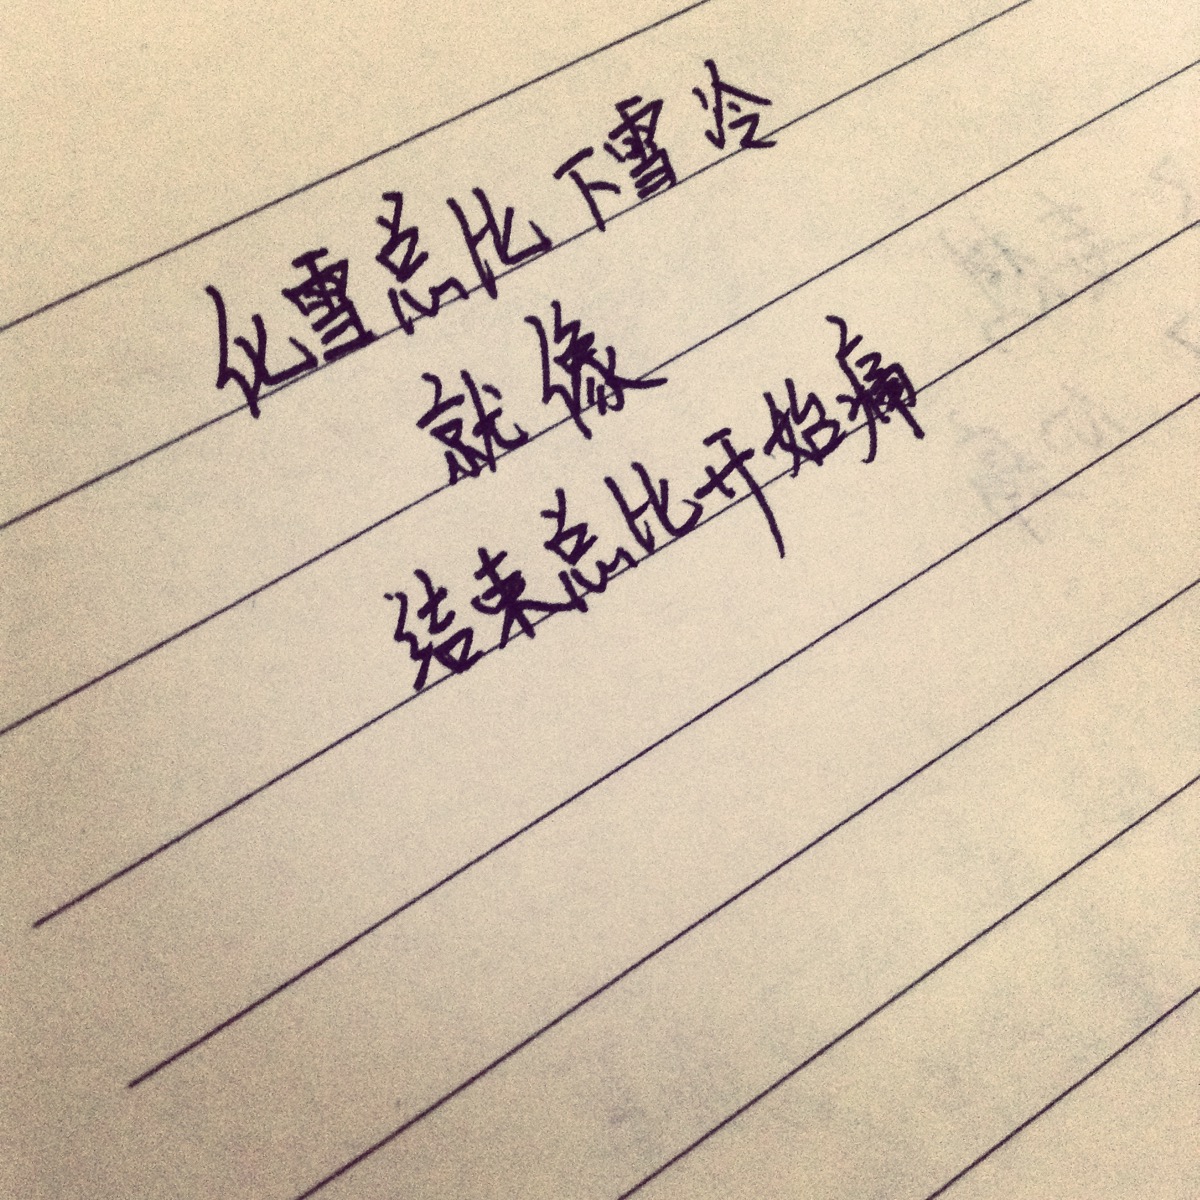 化雪总比下雪冷
就像
结束总比开始痛